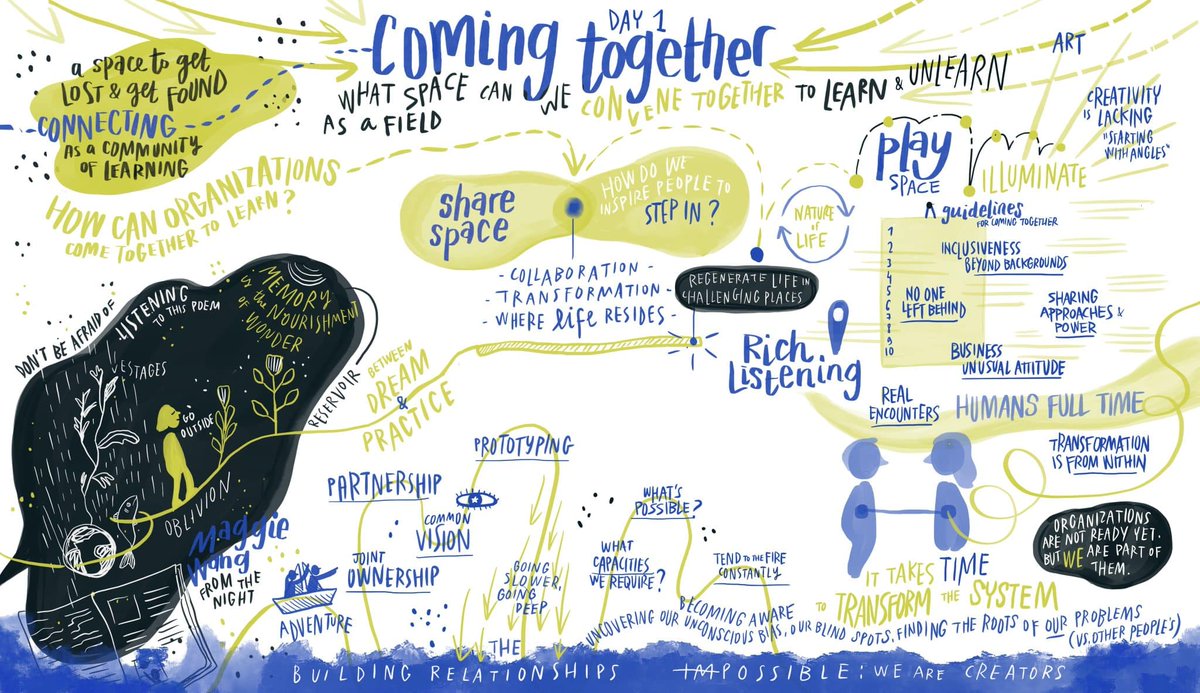 DAY 1
Coming together
WHAT SPACE CAN WE CONVENE TOGETHER TO LEARN & UNLEARN
AS a FIELD
a SPACE to GET
LOST & get FOUND
CONNECTING
AS a COMMUNITY
OF LEARNING
HOW CAN ORGANIZATIONS
COME TOGETHER TO LEARN?
share
space
HOW DO WE
INSPIRE PEOPLE TO
STEP IN?
- COLLABORATION -
- TRANSFORMATION -
- WHERE life RESIDES -
NATURE
OF
LIFE
REGENERATE LIFE IN
CHALLENGING PLACES
Rich
Listening
play
SPACE
ART
CREATIVITY
IS LACKING
"STARTING
WITH ANGLES"
ILLUMINATE
guidelines
FOR COMING TOGETHER
1
2
3
4
5
6
7
8
9
10
INCLUSIVENESS
BEYOND BACKGROUNDS
NO ONE
LEFT BEHIND
SHARING
APPROACHES &
POWER
BUSINESS
UNUSUAL ATTITUDE
REAL
ENCOUNTERS
HUMANS FULL TIME
TRANSFORMATION
IS FROM WITHIN
ORGANIZATIONS
ARE NOT READY YET.
BUT WE ARE PART OF
THEM.
IT TAKES TIME
TO TRANSFORM THE SYSTEM
DON'T BE AFRAID OF
LISTENING
TO THIS POEM
MEMORY
is the NOURISHMENT
OF WONDER
VESTAGES
GO
OUTSIDE
RESERVOIR
OBLIVION
Maggie
Wang
FROM THE
NIGHT
BETWEEN
DREAM
&
PRACTICE
ADVENTURE
PARTNERSHIP
JOINT
OWNERSHIP
COMMON
VISION
PROTOTYPING
GOING
SLOWER,
GOING
DEEP
WHAT'S
POSSIBLE?
WHAT
CAPACITIES
WE REQUIRE?
TEND TO THE FIRE
CONSTANTLY
BECOMING AWARE
UNCOVERING OUR UNCONSCIOUS BIAS, OUR BLIND SPOTS, FINDING THE ROOTS OF OUR PROBLEMS
(VS. OTHER PEOPLE'S)
THE
BUILDING RELATIONSHIPS
IMPOSSIBLE: WE ARE CREATORS